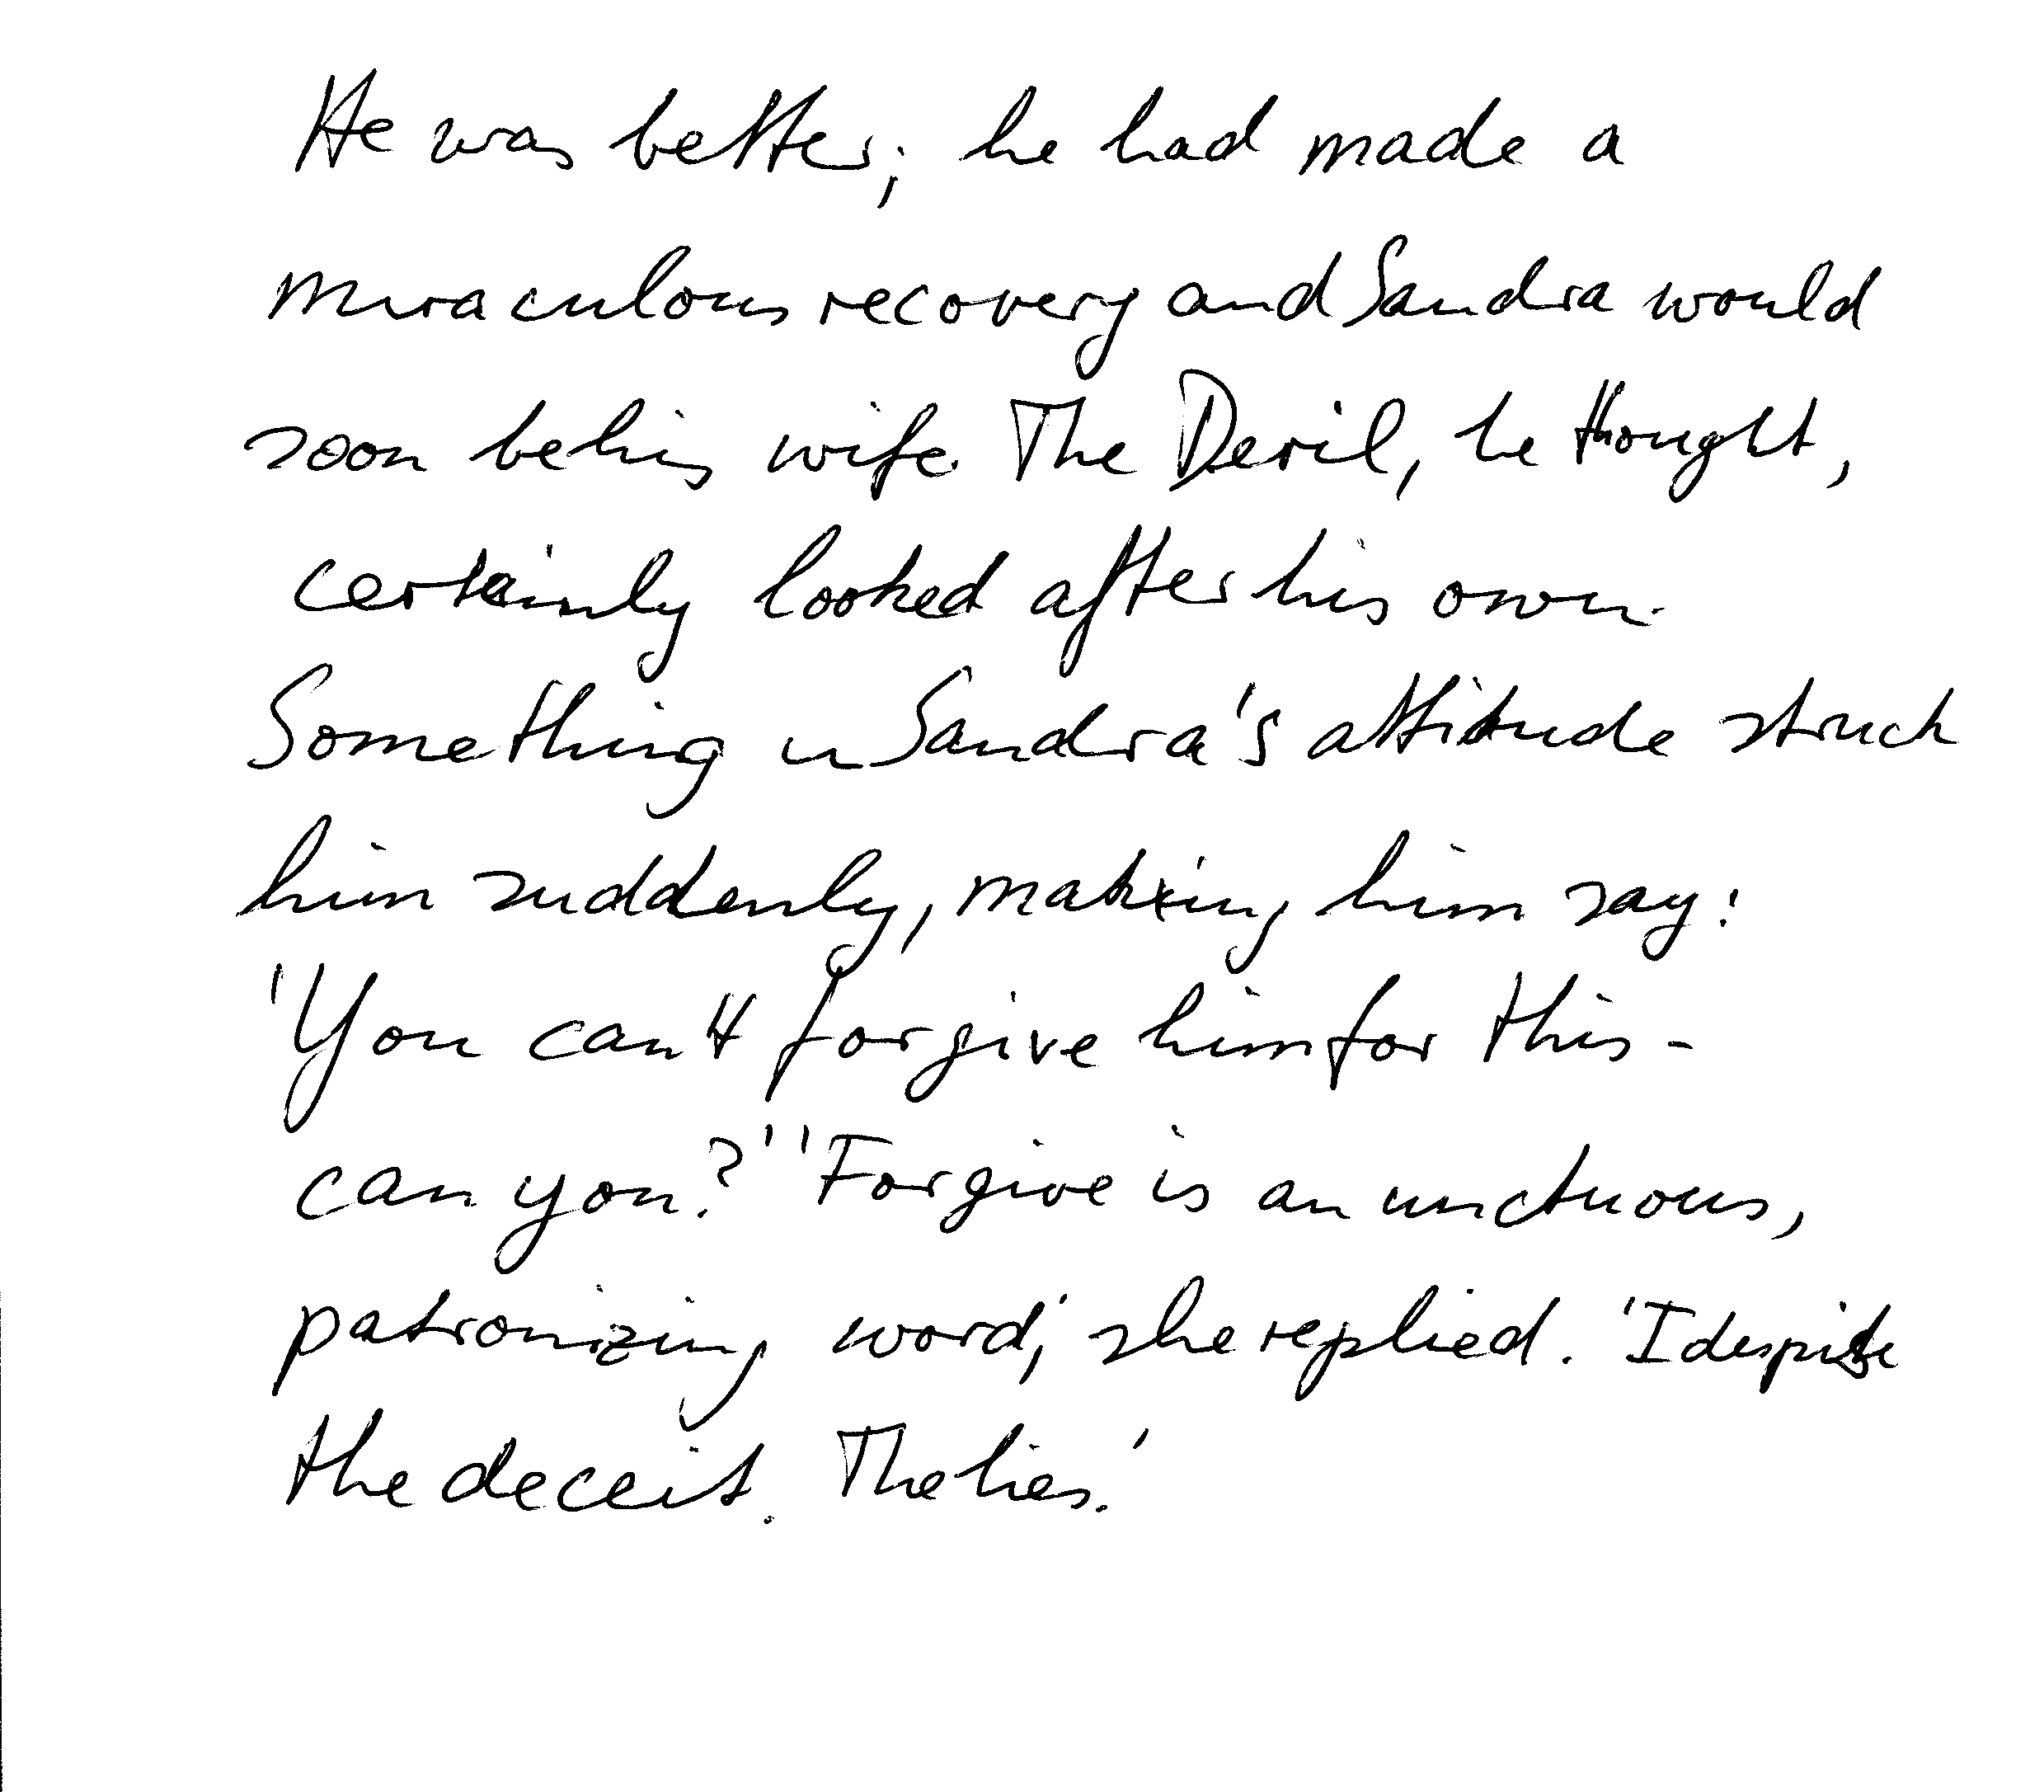 He was better; he had made a
miraculous recovery and Sandra would
soon be his wife. The Devil, he thought,
certainly looked after his own.
Something in Sandra's attitude struck
him suddenly, making him say:
'You can't forgive him for this -
can you?' 'Forgive is an unctuous,
patronizing word,' she replied. 'I despise
the deceit. The lies.'